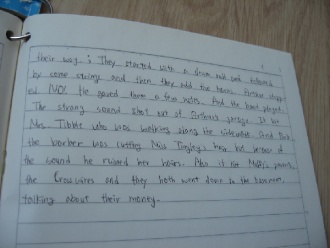 their way. ; They started with a drum and followed
by some strings and then they add the
ed NO! He gaved them a few notes. And the band played.
The strong sound shot out of garage. It hit
Mrs. Tibble who was walking along the sidewalk. And Jack
the barber was cutting Miss hair but because of
the sound he ruined her hairs. Also it hit Matty's parents,
the Crosswires and they both went down to the basement,
talking about their money.